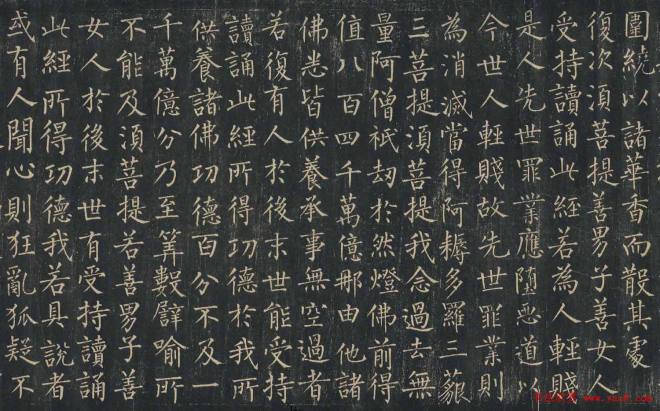 圍繞以諸華香而散其處
復次須菩提善男子善女人
受持讀誦此經若為人輕賤
是人先世罪業應墮惡道以
今世人輕賤故先世罪業則
為消滅當得阿耨多羅三藐
三菩提須菩提我念過去無
量阿僧祇劫於然燈佛前得
值八百四千萬億那由他諸
佛悉皆供養承事無空過者
若復有人於後末世能受持
讀誦此經所得功德於我所
供養諸佛功德百分不及一
千萬億分乃至筭數譬喻所
不能及須菩提若善男子善
女人於後末世有受持讀誦
此經所得功德我若具說者
或有人聞心則狂亂狐疑不